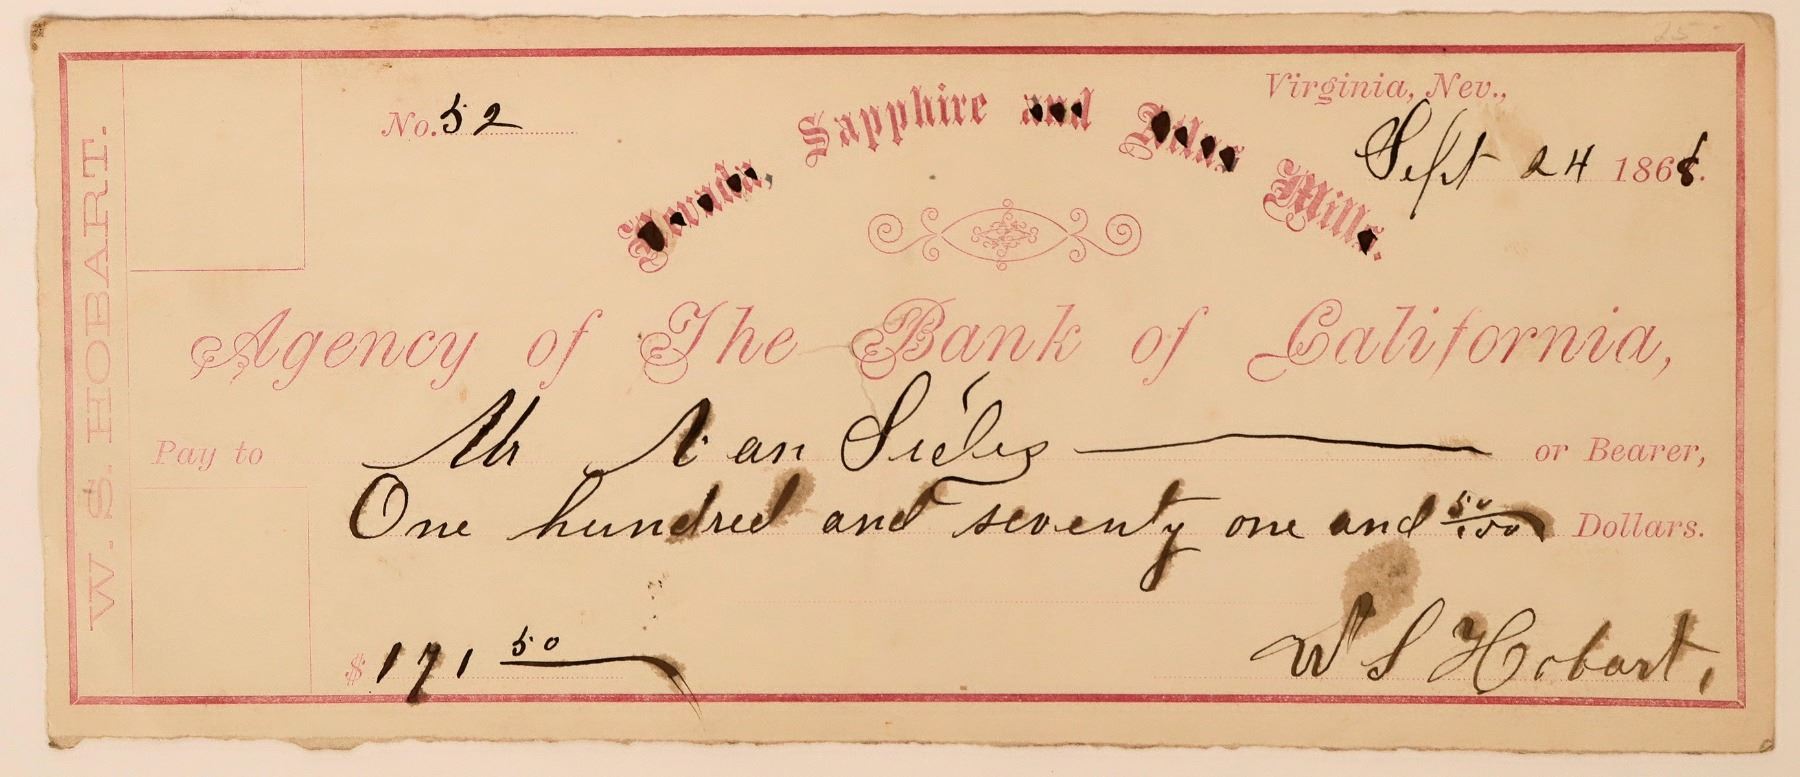 25
Virginia, Nev.,
No. 52
Nevada, Sapphire and Atlas Mills.
Sept 24 1868.
W. S. HOBART.
Agency of The Bank of California,
Pay to Mr Van Sicles or Bearer,
One hundred and seventy one and 50/100 Dollars.
$ 171 50
W S Hobart,